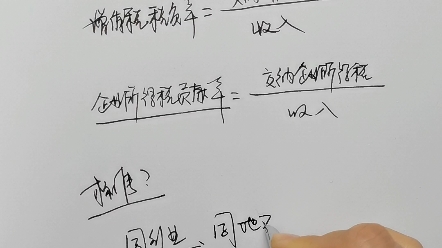 增值税税负率=
收入
企业所得税贡献率=交纳企业所得税
收入
标准?
同行业、同地区